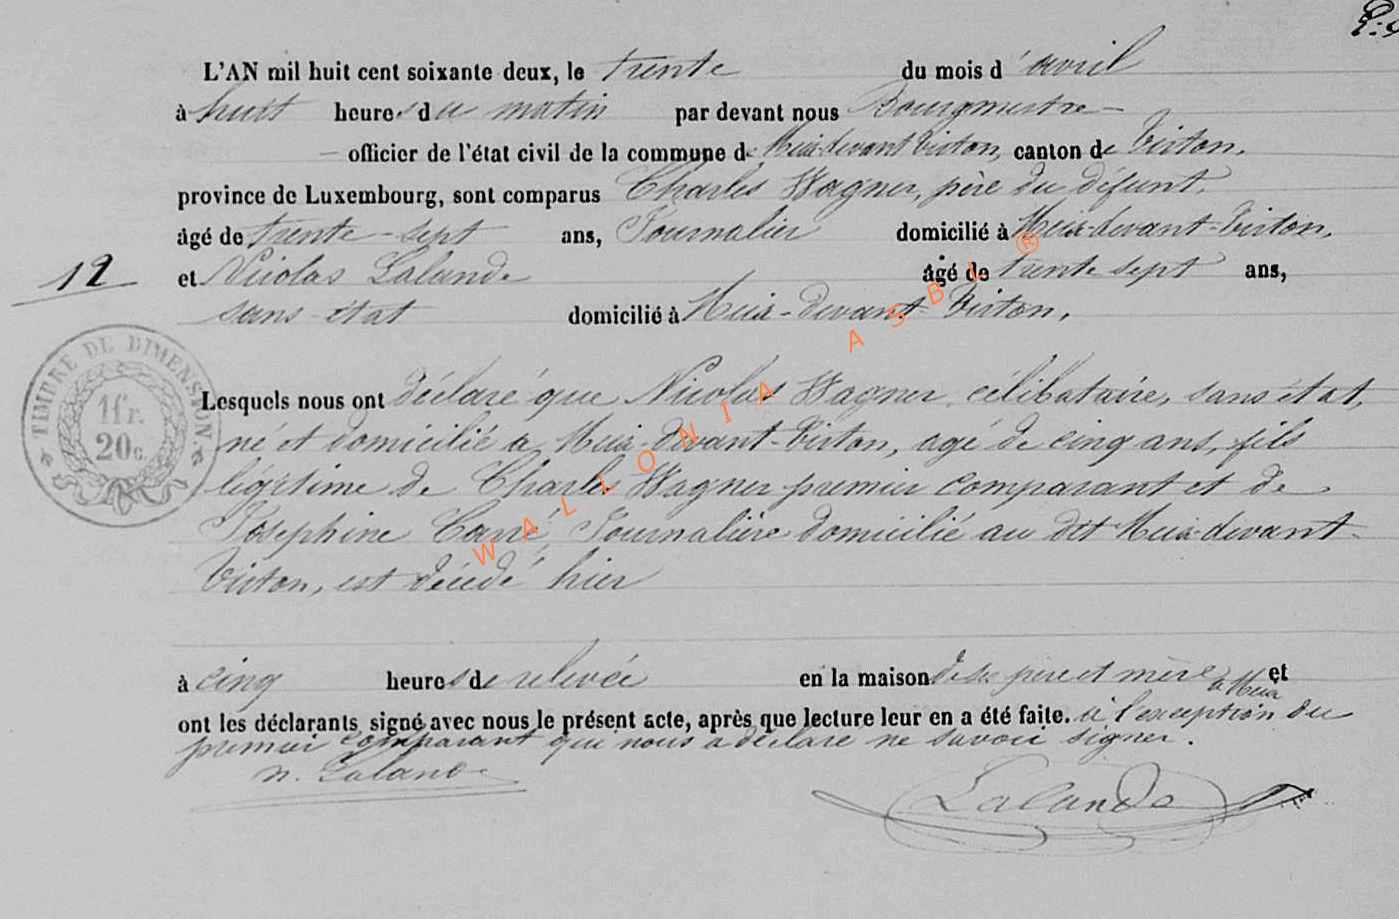 L'AN mil huit cent soixante deux, le trente du mois d'avril
à huit heures du matin par devant nous Bourgmestre
officier de l'état civil de la commune de Meix-devant-Virton, canton de Virton,
province de Luxembourg, sont comparus Charles Wagner, père du défunt,
âgé de trente-sept ans, Journalier domicilié à Meix-devant-Virton,
12
et Nicolas Lalande âgé de trente sept ans,
sans état domicilié à Meix-devant-Virton,
TIMBRE DE DIMENSION
1 fr.
20 c.
Lesquels nous ont déclaré que Nicolas Wagner, célibataire, sans état,
né et domicilié à Meix-devant-Virton, agé de cinq ans, fils
légitime de Charles Wagner premier comparant et de
Joséphine Carré, Journalière domicilié au dit Meix-devant-
Virton, est décédé hier
à cinq heures de relevée en la maison de ses père et mère à Meix et
ont les déclarants signé avec nous le présent acte, après que lecture leur en a été faite. à l'exception du
premier comparant que nous a déclaré ne savoir signer.
n. Lalande
Lalande
WALLONIA ASBL ®